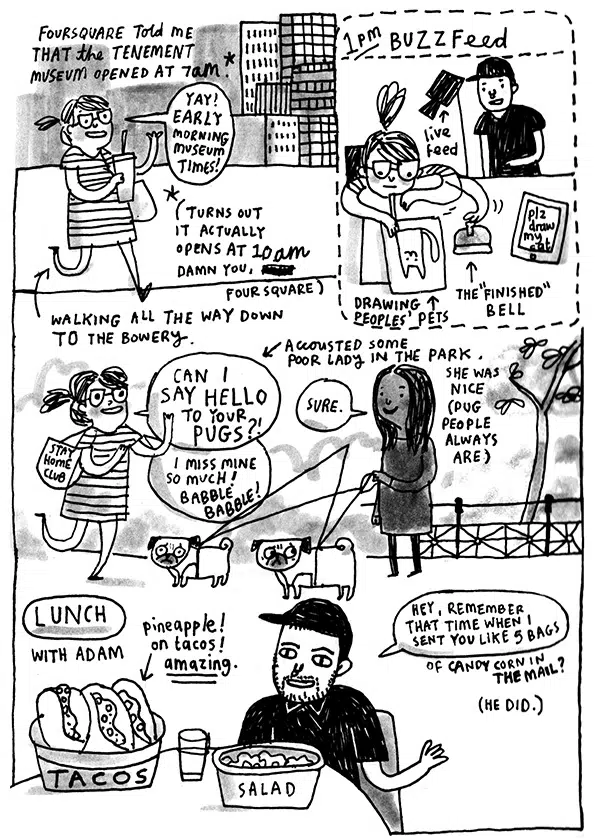 FOURSQUARE TOLD ME
THAT the TENEMENT
MUSEUM OPENED AT 7am.*
YAY!
EARLY
MORNING
MUSEUM
TIMES!
*
(TURNS OUT
IT ACTUALLY
OPENS AT 10am
DAMN YOU,
FOURSQUARE)
WALKING ALL THE WAY DOWN
TO THE BOWERY.
1PM BUZZFeed
live
feed
plz
draw
my
cat
DRAWING
PEOPLES' PETS
THE "FINISHED"
BELL
ACCOUSTED SOME
POOR LADY IN THE PARK.
CAN I
SAY HELLO
TO YOUR
PUGS?!
I MISS MINE
SO MUCH!
BABBLE
BABBLE!
STAY
HOME
CLUB
SURE.
SHE WAS
NICE
(PUG
PEOPLE
ALWAYS
ARE)
LUNCH
WITH ADAM
pineapple!
on tacos!
amazing.
TACOS
SALAD
HEY, REMEMBER
THAT TIME WHEN I
SENT YOU LIKE 5 BAGS
OF CANDY CORN IN
THE MAIL?
(HE DID.)